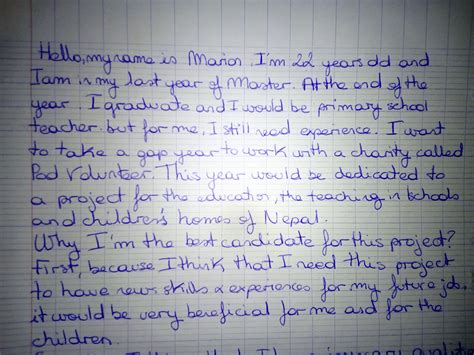 Hello, my name is Marion. I'm 22 years old and
I am in my last year of Master. At the end of the
year, I graduate and I would be primary school
teacher. but for me, I still need experience. I want
to take a gap year to work with a charity called
Pod Volunteer. This year would be dedicated to
a project for the education, the teaching in schools
and children's homes of Nepal.
Why I'm the best candidate for this project?
First, because I think that I need this project
to have new skills & experiences for my future job.
it would be very beneficial for me and for the
children.